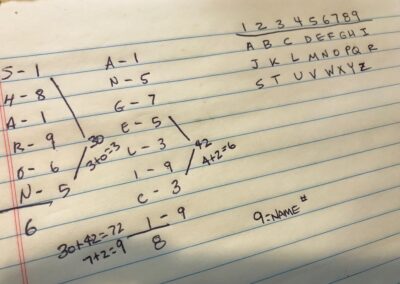 S - 1
H - 8
A - 1
R - 9
O - 6
N - 5
6
30
3+0=3
A - 1
N - 5
G - 7
E - 5
L - 3
I - 9
C - 3
1 - 9
8
42
4+2=6
30+42=72
7+2=9
1 2 3 4 5 6 7 8 9
A B C D E F G H I
J K L M N O P Q R
S T U V W X Y Z
9=NAME #